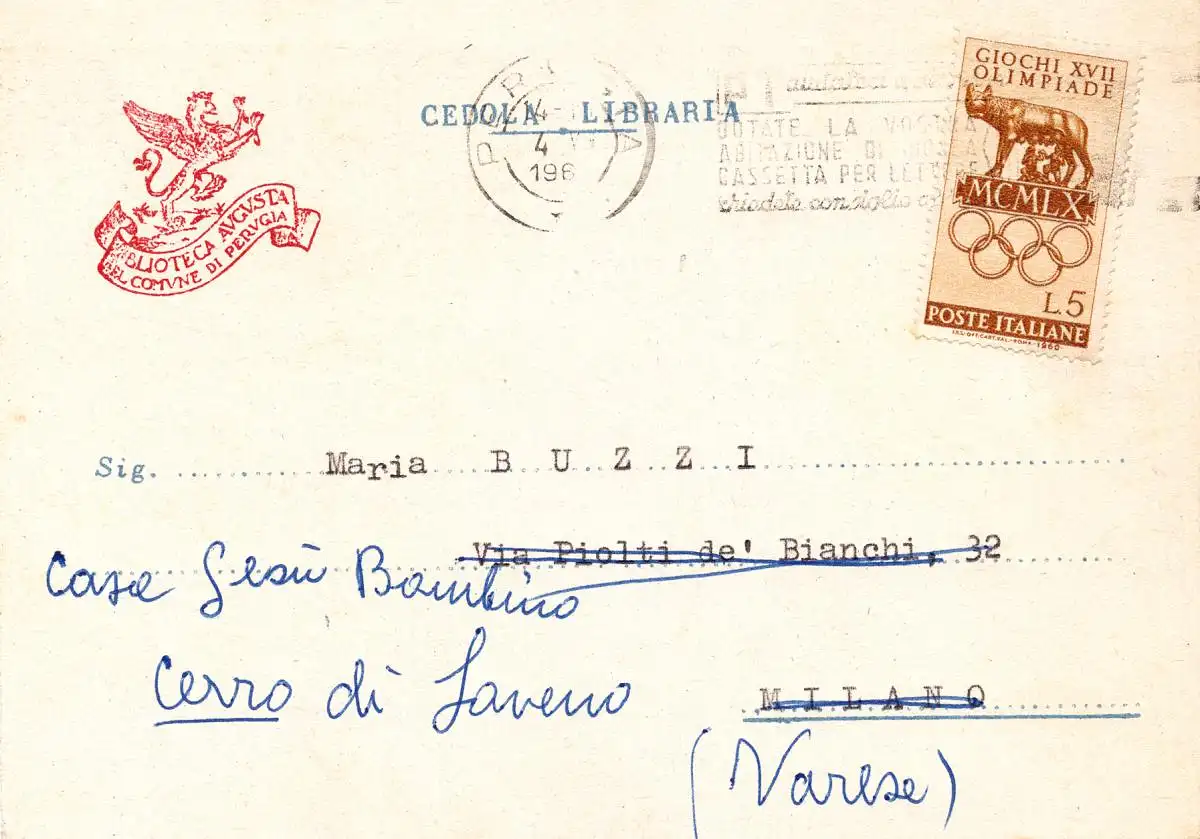 BIBLIOTECA AVGVSTA
DEL COMVNE DI PERVGIA
CEDOLA LIBRARIA
4
196
DOTATE LA VOSTRA
ABITAZIONE DI
CASSETTA PER LETTERE
GIOCHI XVII
OLIMPIADE
MCMLX
L.5
POSTE ITALIANE
I.P.S.-OFF.CART.VAL.-ROMA-1960
Sig. Maria BUZZI
Via Piolti de' Bianchi, 32
Casa Gesù Bambino
Cerro di Laveno
MILANO
(Varese)